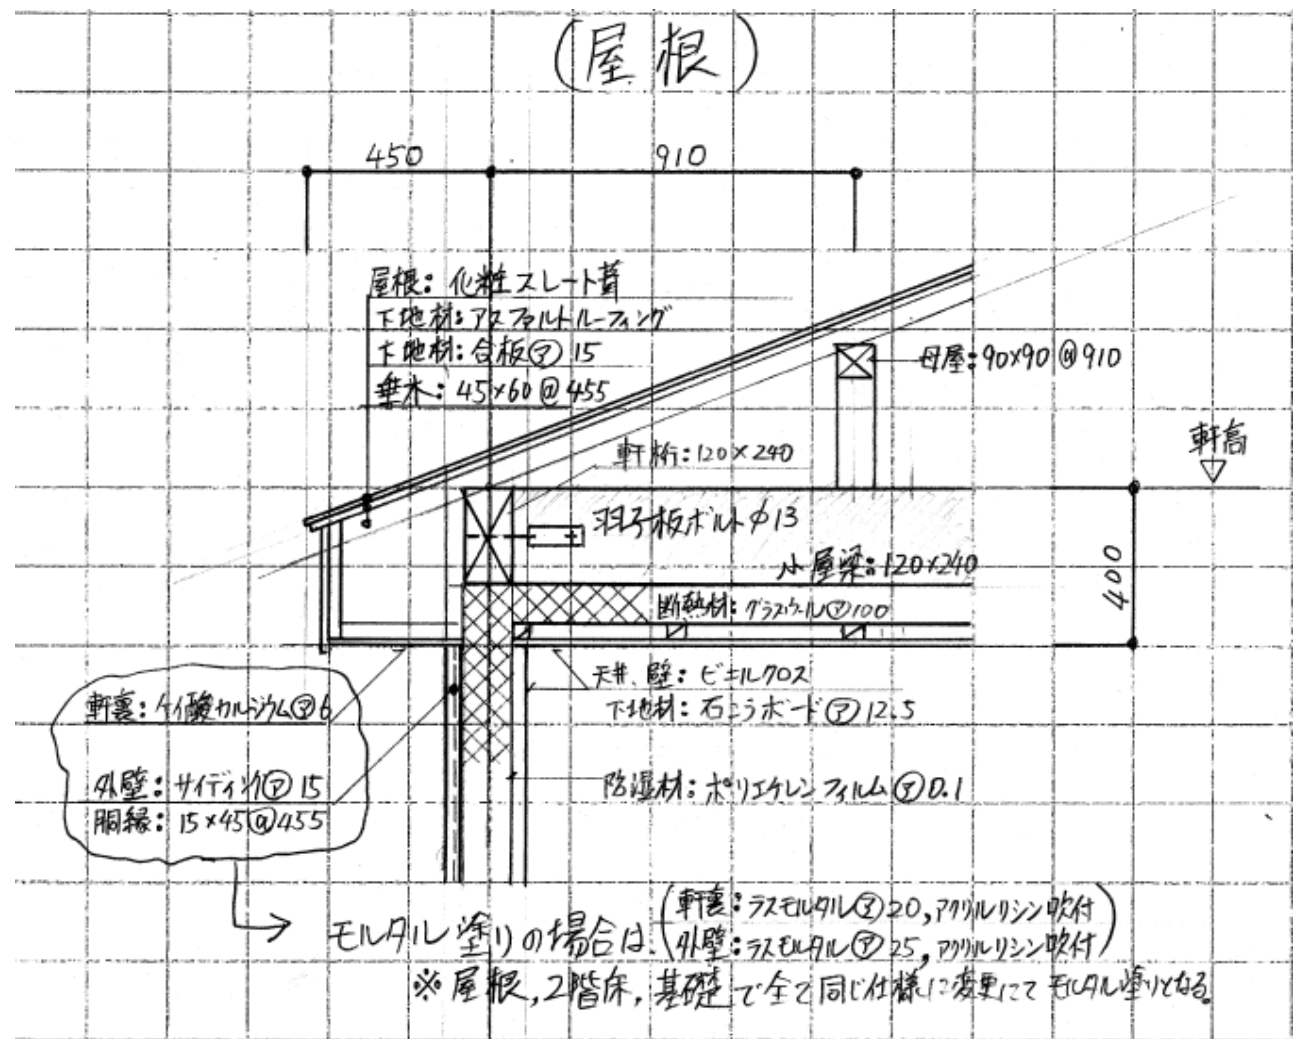 (屋根)
450
910
屋根：化粧スレート葺
下地材：アスファルトルーフィング
下地材：合板㋐15
垂木：45×60@455
母屋：90×90@910
軒桁：120×240
軒高
羽子板ボルトφ13
小屋梁：120×240
400
断熱材：グラスウール㋐100
天井、壁：ビニルクロス
下地材：石こうボード㋐12.5
軒裏：ケイ酸カルシウム㋐6
外壁：サイディング㋐15
胴縁：15×45@455
防湿材：ポリエチレンフィルム㋐0.1
モルタル塗りの場合は、
(軒裏：ラスモルタル㋐20,アクリルリシン吹付
外壁：ラスモルタル㋐25,アクリルリシン吹付)
※屋根,2階床,基礎で全て同じ仕様に変更にてモルタル塗りとなる。